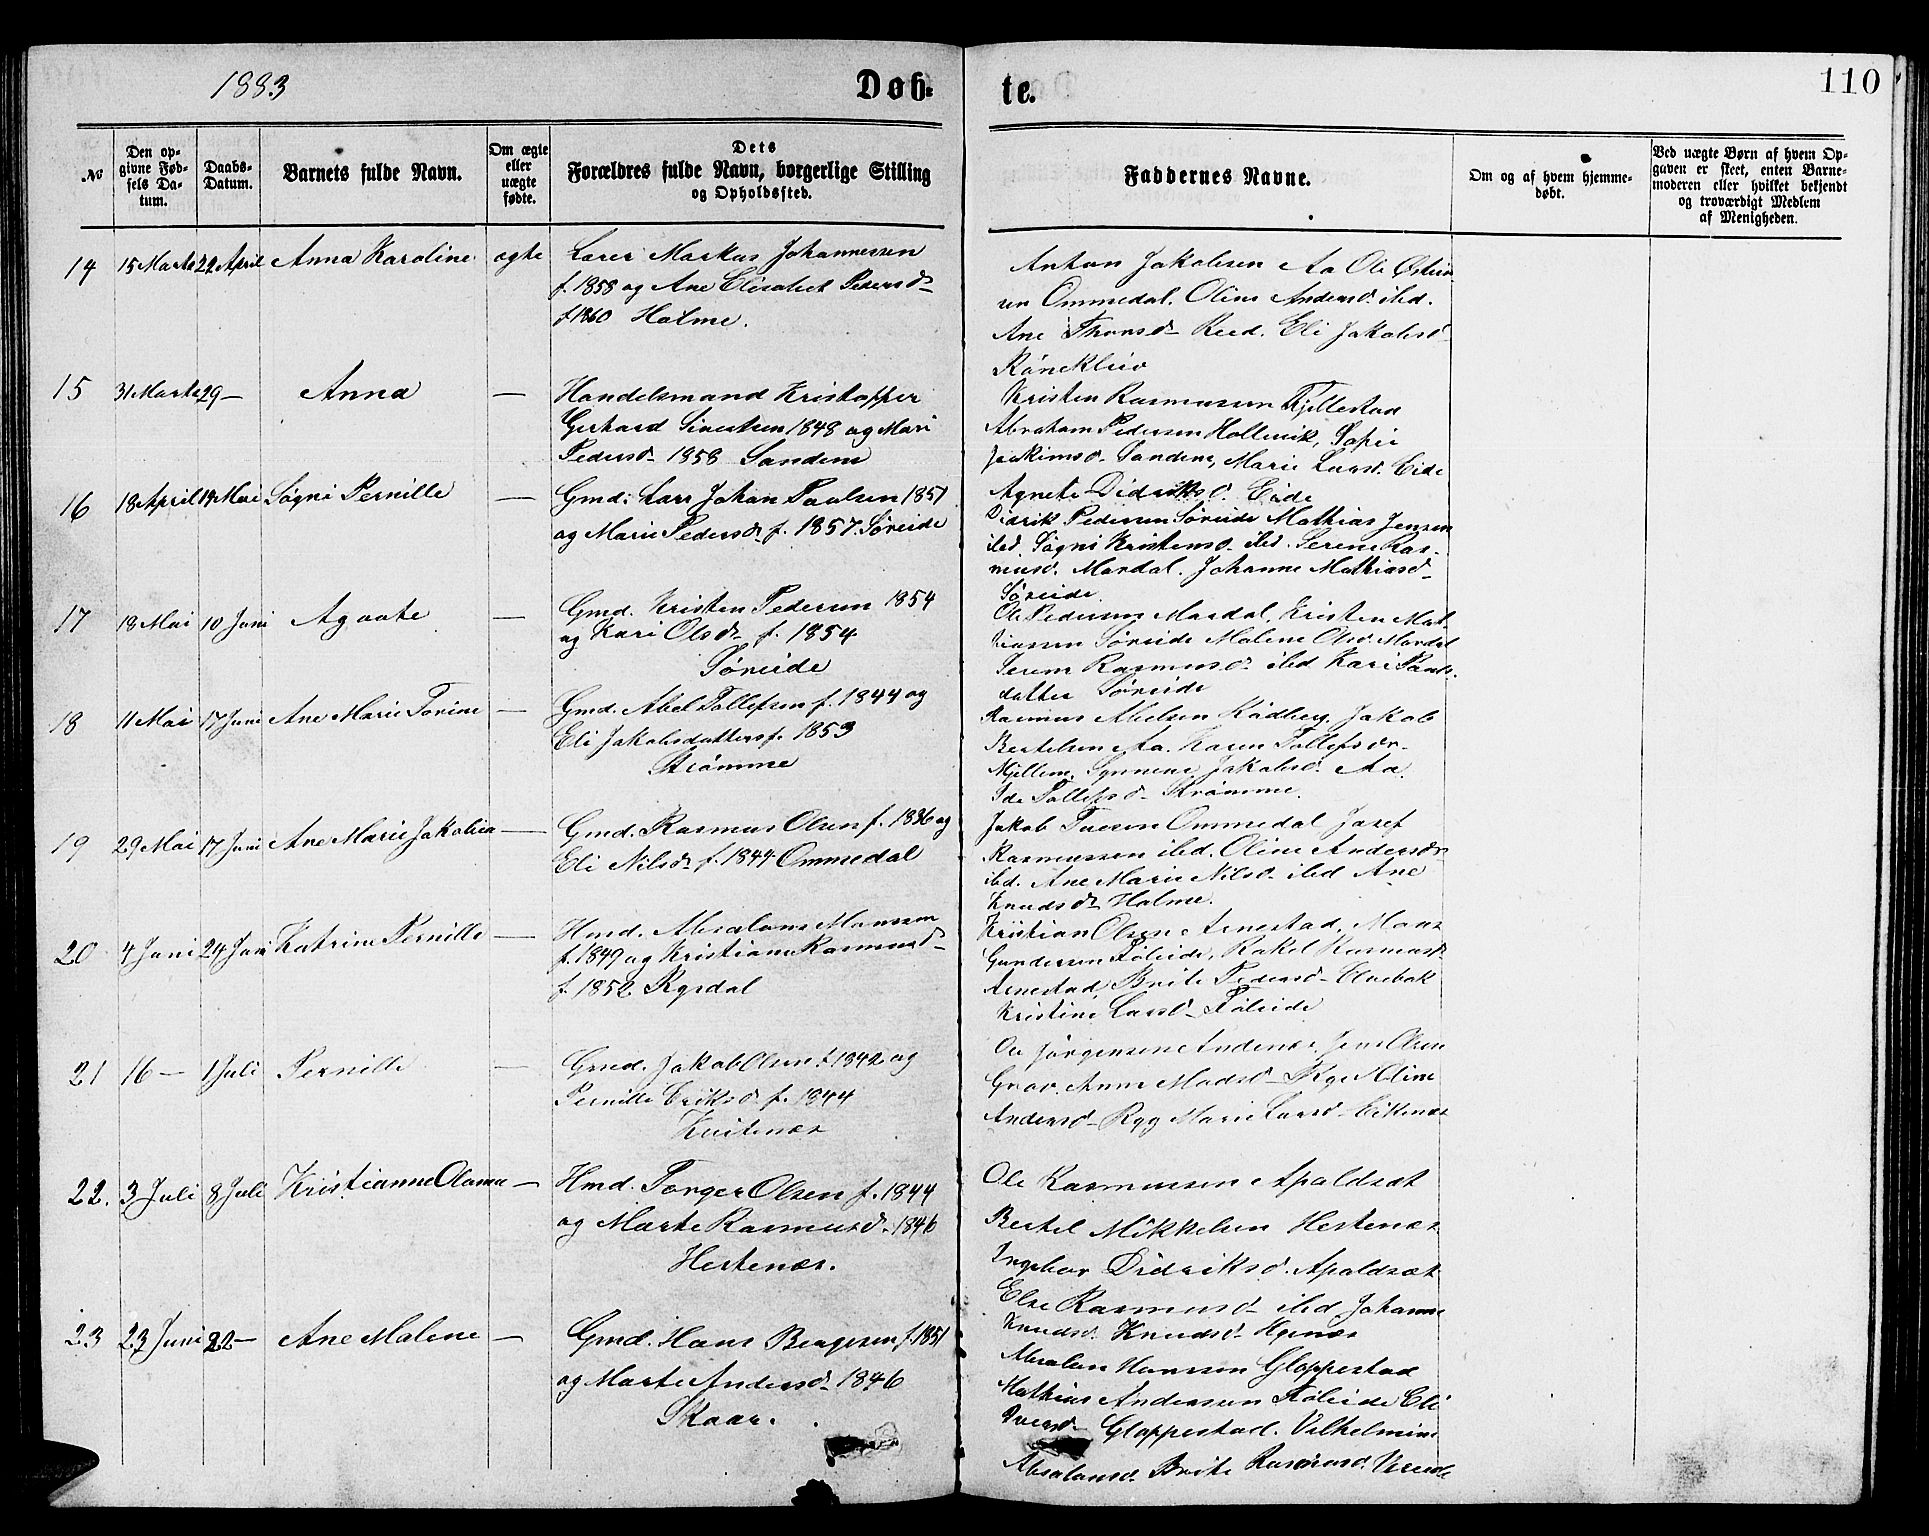 1883
Døb-
te.
110
No
Den op-
givne Fød-
sels Da-
tum.
Daabs-
Datum.
Barnets fulde Navn.
Om ægte
eller
uægte
fødte.
Dets
Forældres fulde Navn, borgerlige Stilling
og Opholdssted.
Faddernes Navne.
Om og af hvem hjemme-
døbt.
Ved uægte Børn af hvem Op-
gaven er skeet, enten Barne-
moderen eller hvilket bekjendt
og troværdigt Medlem
af Menigheden.
14 15 Marts 22 April Anna Karoline ægte Lærer Markus Johannessen
f. 1858 og Ane Elisabet Pedersd
f 1860 Holme.
Anton Jakobsen Aa Ole Østen
sen Ommedal. Oline Andersd ibd.
Ane Thomsd Reed. Eli Jakobsd
15 31 Marts 29 — Anna — Handelsmand Kristoffer
Gerhard Sivertsen 1848 og Mari
Pedersd 1858 Sandene
Kristen Rasmussen Fjellestad
Abraham Pedersen Hollevik, Sofie
Joakimsd Sandene, Marie Larsd. Eide
Agnete Didriksd. Eide
16 18 April 14 Mai Søgni Pernille — Gmd: Lars Johan Paulsen 1851
og Marie Pedersd f. 1857. Søreide
Didrik Pedersen Søreide Mathias Jensen
ibd. Søgni Kristensd. ibd. Serene Ras-
musd. Mardal. Johanne Mathiasd
Søreide
17 18 Mai 10 Juni Agaate — Gmd. Kristen Pedersen 1854
og Kari Olsd f. 1854
Søreide
Ole Pedersen Mardal, Kristen Mat-
hiassen Søreide Malene Olsd. Mardal
Serene Rasmusd ibd Kari Pauls-
datter Søreide
18 11 Mai 17 Juni Ane Marie Torine — Gmd. Abel Tollefsen f. 1844 og
Eli Jakobsdatter f. 1853
Strømme
Rasmus Abelsen Rødberg, Jakob
Bertelsen Aa. Karen Tollefsdr
Mjellem, Synneve Jakobsd. Aa.
Ide Tollefsd Strømme.
19 29 Mai 17 Juni Ane Marie Jakobea — Gmd. Rasmus Olsen f. 1836 og
Eli Nilsd f. 1844 Ommedal
Jakob Ommedal Josef
Rasmussen ibd. Oline Andersdr
ibd. Ane Marie Nilsd ibd Ane
Knudsd Holme.
20 4 Juni 24 Juni Katrine Pernille — Hmd. Absalons Monssen
f. 1849 og Kristiane Rasmusd
f. 1852 Rysdal
Kristian Olsen Arnestad, Mons
Gundersen Føleide, Rakel Rasmusd
Arnestad, Brite Pedersd Elvebak
Kristine Larsd Føleide
21 16 — 1 Juli Pernille — Gmd. Jakob Olsen f. 1842 og
Pernille Eriksd f. 1844
Kvitenes
Ole Jørgensen Andenæs, Jens Olsen
Grov. Anne Madsd Ryg Oline
Andersd Ryg Marie Larsd Eikenæs
22. 3 Juli 8 Juli Kristianne Olama — Hmd. Torger Olsen f. 1844
og Marte Rasmusd. 1846
Hestenæs.
Ole Rasmussen Apaldsæt
Bertel Mikkelsen Hestenæs
Ingebor Didriksd. Apaldsæt
Else Rasmusd ibd Johanne
Knudsd. Knudsd
23 23 Juni 22 — Ane Malene — Gmd. Hans Bengesen f. 1851
og Marte Andersd 1846
Skaar.
Absalon Hanssen Gloppestad
Mathias Andersen Føleide Eli
Iversd Gloppestad. Vilhelmine
Absalonsd. Brite Rasmusd. Vereide